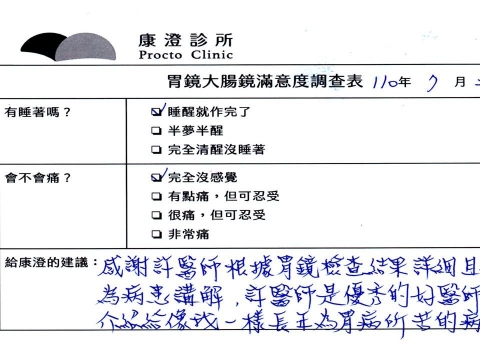 康澄診所
Procto Clinic
胃鏡大腸鏡滿意度調查表 110年 7月
有睡著嗎？
☑ 睡醒就作完了
☐ 半夢半醒
☐ 完全清醒沒睡著
會不會痛？
☑ 完全沒感覺
☐ 有點痛，但可忍受
☐ 很痛，但可忍受
☐ 非常痛
給康澄的建議：感謝許醫師根據胃鏡檢查結果詳細且
為病患講解，許醫師是優秀的好醫師
介紹給像我一樣長年為胃病所苦的病